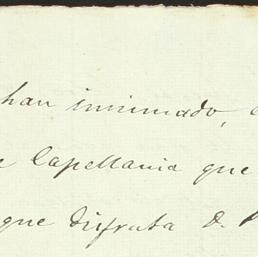 han inninado,
Capellania que
que disfruta D.